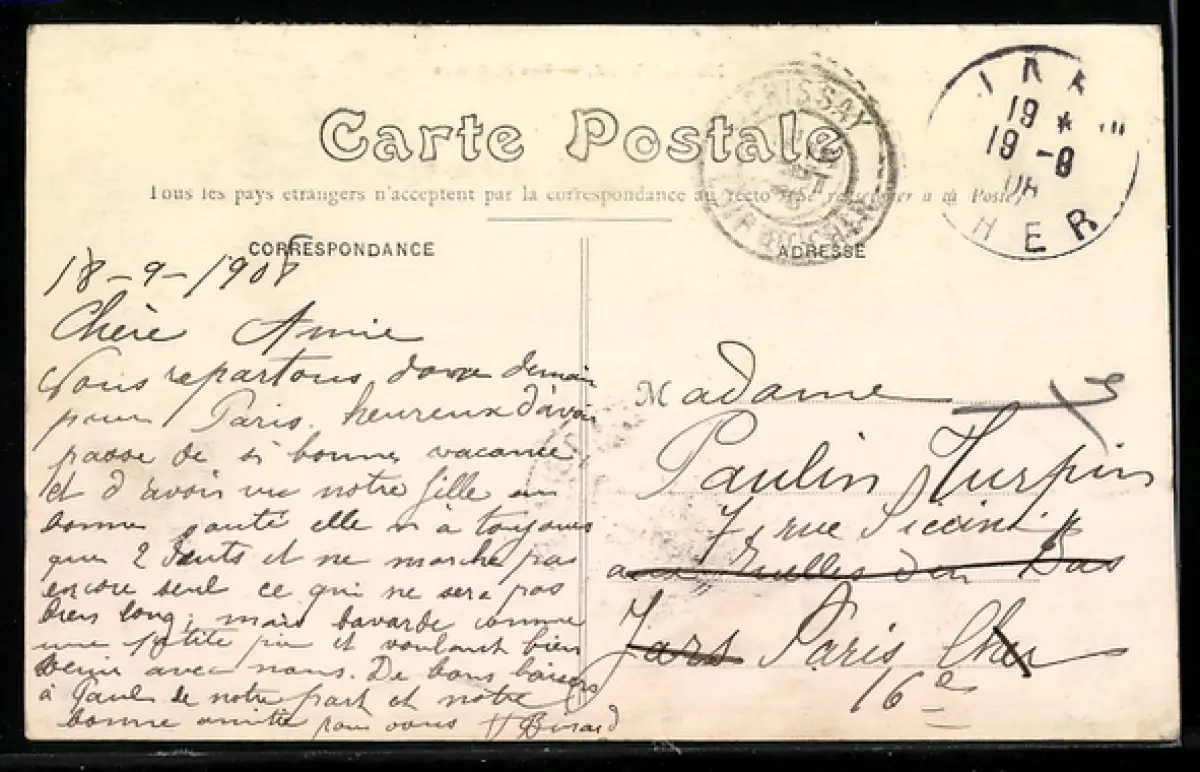 Carte Postale
Tous les pays etrangers n'acceptent par la correspondance au recto (Se renseigner a la Poste)
CORRESPONDANCE
ADRESSE
CRISSAY
JARS
19 *
19 -9
08
CHER
18-9-1908
Chère Amie
Nous repartons demain
pour Paris. heureux d'avoir
passé de si bonnes vacances,
et d'avoir vu notre fille en
bonne santé elle n'à toujours
que 2 dents et ne marche pas
encore seul ce qui ne sera pas
bien long, mais bavarde comme
une petite pie et voulant bien
venir avec nous. De bons baisers
à Paul de notre part et notre
bonne amitié pour vous
Madame
Paulin Turpin
7 rue Piccini
aux Ruelles d'en Bas
Jars Paris Cher
16e